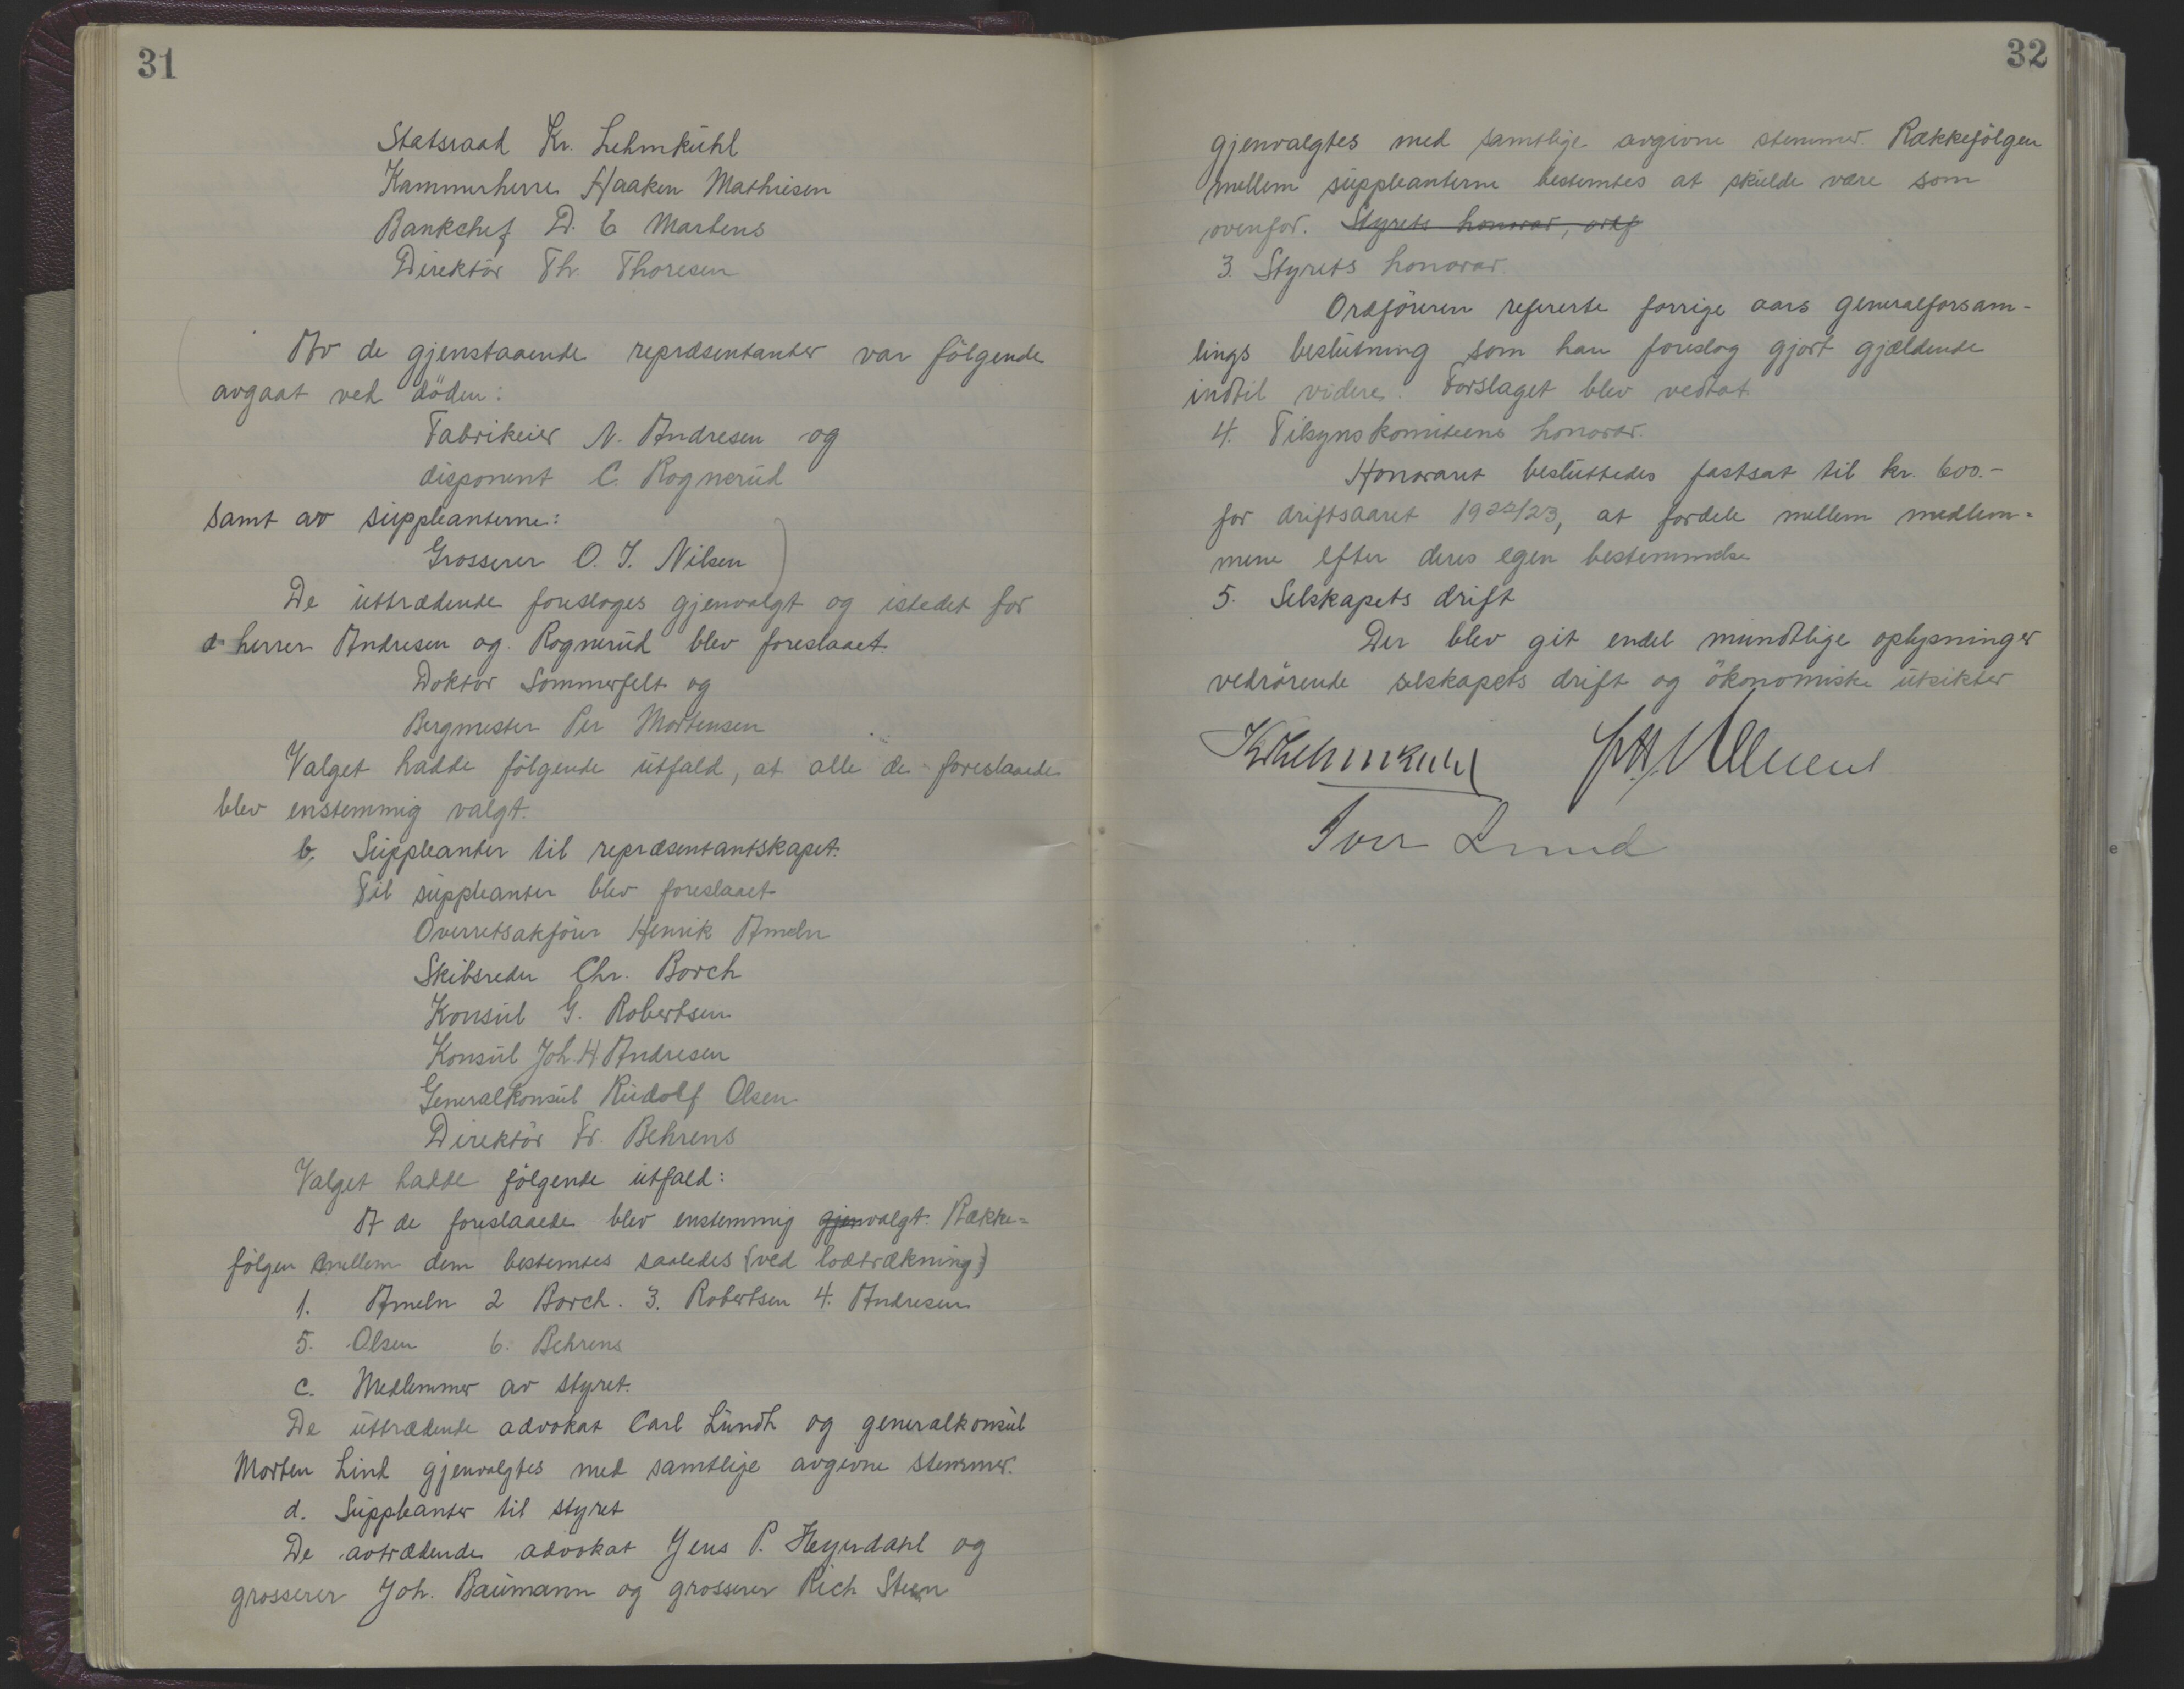 31
Statsraad Kr. Lehmkuhl
Kammerherre Haaken Mathiesen
Bankchef D. C Martens
Direktör Th. Thoresen
Av de gjenstaaende repræsentanter var fölgende
avgaat ved döden:
Fabrikeier N. Andresen og
disponent C. Rognerud
samt av suppleanterne:
Grosserer O. J. Nilsen
De uttrædende foresloges gjenvalgt og istedet for
d herrer Andresen og Rognerud blev foreslaaet
Doktor Sommerfelt og
Bergmester Per Mortensen
Valget hadde fölgende utfald, at alle de foreslaaede
blev enstemmig valgt.
b. Suppleanter til repræsentantskapet.
Til suppleanter blev foreslaaet
Overretsakförer Henrik Ameln
Skibsreder Chr. Borch
Konsul G. Robertsen
Konsul Joh. H Andresen
Generalkonsul Rudolf Olsen
Direktör Fr. Behrens
Valget hadde fölgende utfald:
A de foreslaaede blev enstemmig gjenvalgt. Række-
fölgen mellem dem bestemtes saaledes (ved lodtrækning)
1. Ameln 2 Borch. 3. Robertsen 4. Andresen
5. Olsen 6. Behrens
c. Medlemmer av styret.
De uttrædende advokat Carl Lundh og generalkonsul
Morten Lind gjenvalgtes med samtlige avgivne stemmer.
d. Suppleanter til styret
De avtrædende advokat Jens P. Heyerdahl og
grosserer Joh. Baumann og grosserer Rich Steen
32
gjenvalgtes med samtlige avgivne stemmer. Rækkefölgen
mellem suppleanterne bestemtes at skulde være som
ovenfor. Styrets honorar,
3. Styrets honorar.
Ordföreren refererte forrige aars generalforsam-
lings beslutning som han foreslog gjort gjældende
indtil videre. Forslaget blev vedtat.
4. Tilsynskomiteens honorar.
Honoraret besluttedes fastsat til kr. 600.-
for driftsaaret 1922/23, at fordele mellem medlem-
mene efter deres egen bestemmelse
5. Selskapets drift
Der blev git endel mundtlige oplysninger
vedrörende selskapets drift og ökonomiske utsikter
Kr Lehmkuhl
Iver Lund